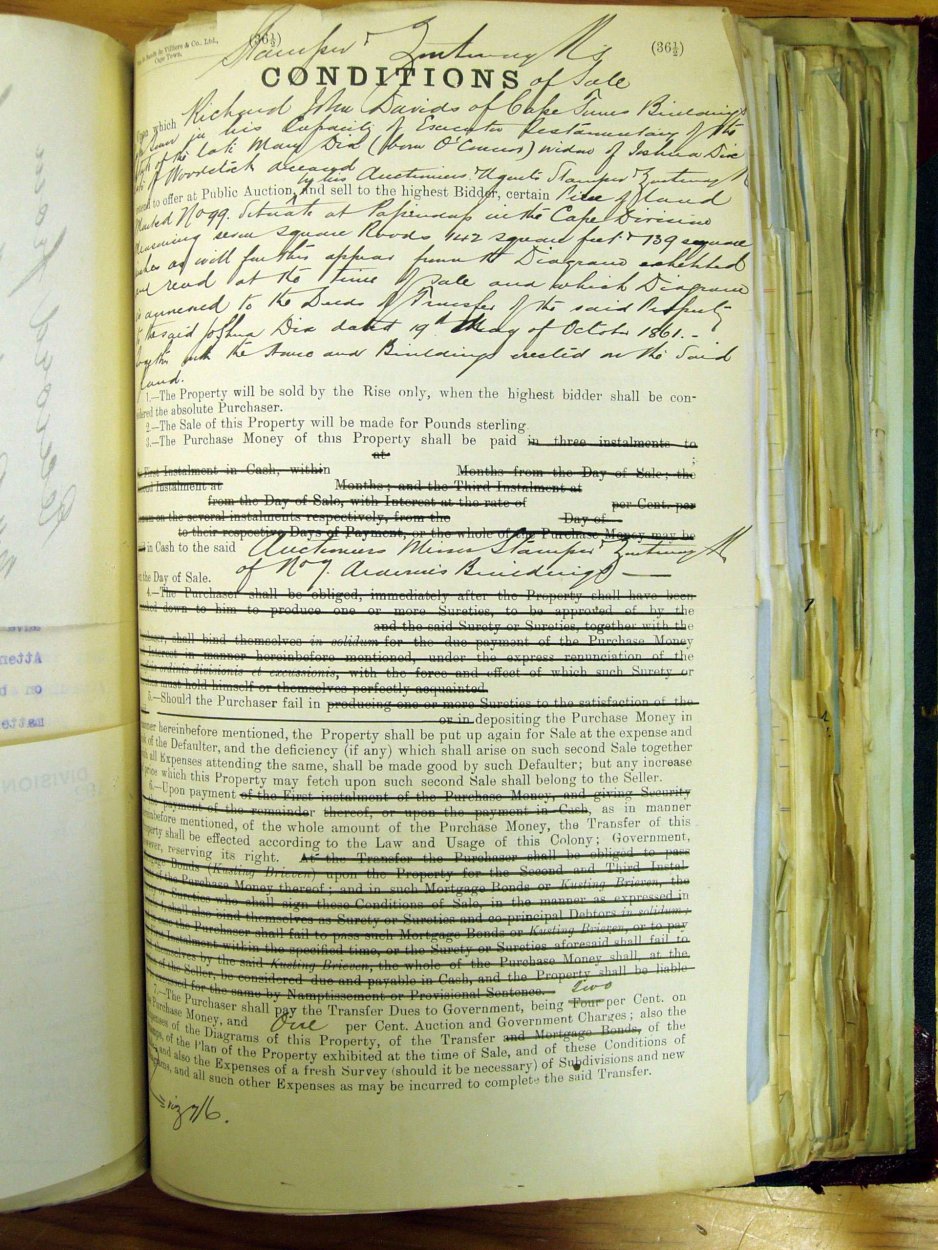 & Villiers & Co., Ltd.,
Cape Town.
(36½) (36½)
Stamper & Zoutendyk
CONDITIONS of Sale
Upon which Richard John Davids of Cape Times Buildings
in his Capacity of Executor Testamentary of the
of the late Mary Dix (born O'Connor) widow of Joshua Dix
of Woodstock deceased
by his Auctioneers & Agents Stamper &
intend to offer at Public Auction, and sell to the highest Bidder, certain Piece of Land
Marked No 99. Situate at Papendorp in the Cape Division
Measuring seven square Roods 142 square feet & 139 square
inches as will further appear from the Diagram exhibited
and read at the time of sale and which Diagram
is annexed to the Deeds of Transfer of the said Property
to the said Joshua Dix dated 19th day of October 1861.-
together with the House and Buildings erected on the Said
Land.
1.—The Property will be sold by the Rise only, when the highest bidder shall be con-
sidered the absolute Purchaser.
2.—The Sale of this Property will be made for Pounds sterling.
3.—The Purchase Money of this Property shall be paid in three instalments to
at ;
First Instalment in Cash, within Months from the Day of Sale; the
Instalment at Months; and the Third Instalment at
from the Day of Sale, with Interest at the rate of per Cent. per
on the several instalments respectively, from the Day of
to their respective Days of Payment, or the whole of the Purchase Money may be
in Cash to the said Auctioneers Messrs Stamper &
of No 7. Arderne's Buildings —
the Day of Sale.
4.—The Purchaser shall be obliged, immediately after the Property shall have been
down to him to produce one or more Sureties, to be approved of by the
and the said Surety or Sureties, together with the
shall bind themselves in solidum for the due payment of the Purchase Money
Interest in manner hereinbefore mentioned, under the express renunciation of the
divisionis et excussionis, with the force and effect of which such Surety or
must hold himself or themselves perfectly acquainted.
5.—Should the Purchaser fail in producing one or more Sureties to the satisfaction of the
or in depositing the Purchase Money in
manner hereinbefore mentioned, the Property shall be put up again for Sale at the expense and
of the Defaulter, and the deficiency (if any) which shall arise on such second Sale together
all Expenses attending the same, shall be made good by such Defaulter; but any increase
price which this Property may fetch upon such second Sale shall belong to the Seller.
6.—Upon payment of the First instalment of the Purchase Money, and giving Security
the payment of the remainder thereof, or upon the payment in Cash, as in manner
hereinbefore mentioned, of the whole amount of the Purchase Money, the Transfer of this
Property shall be effected according to the Law and Usage of this Colony; Government,
however, reserving its right. At the Transfer the Purchaser shall be obliged to pass
Bonds (Kusting Brieven) upon the Property for the Second and Third Instal-
of the Purchase Money thereof; and in such Mortgage Bonds or Kusting Brieven, the
or Sureties who shall sign these Conditions of Sale, in the manner as expressed in
shall also bind themselves as Surety or Sureties and co-principal Debtors in solidum;
the Purchaser shall fail to pass such Mortgage Bonds or Kusting Brieven, or to pay
Instalment within the specified time, or the Surety or Sureties aforesaid shall fail to
themselves by the said Kusting Brieven, the whole of the Purchase Money shall, at the
of the Seller, be considered due and payable in Cash, and the Property shall be liable
for the same by Namptissement or Provisional Sentence.
7.—The Purchaser shall pay the Transfer Dues to Government, being Four two per Cent. on
Purchase Money, and One per Cent. Auction and Government Charges; also the
Expenses of the Diagrams of this Property, of the Transfer and Mortgage Bonds, of the
of the Plan of the Property exhibited at the time of Sale, and of these Conditions of
and also the Expenses of a fresh Survey (should it be necessary) of Subdivisions and new
and all such other Expenses as may be incurred to complete the said Transfer.